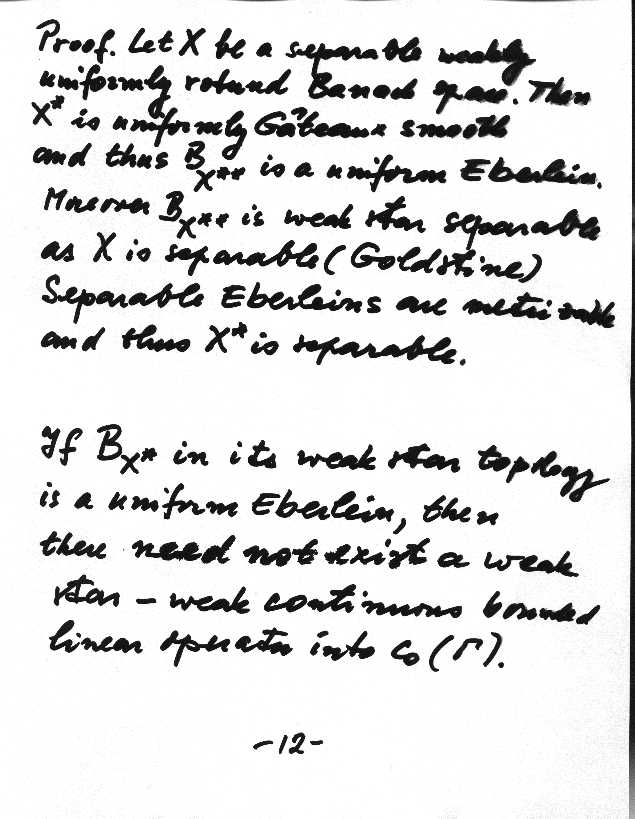 Proof. Let X be a separable weakly
uniformly rotund Banach space. Then
X* is uniformly Gâteaux smooth
and thus B_X** is a uniform Eberlein.
Moreover B_X** is weak star separable
as X is separable (Goldstine)
Separable Eberleins are metrizable
and thus X* is separable.
If B_X* in its weak star topology
is a uniform Eberlein, then
there need not exist a weak
star - weak continuous bounded
linear operator into c₀(Γ).
-12-